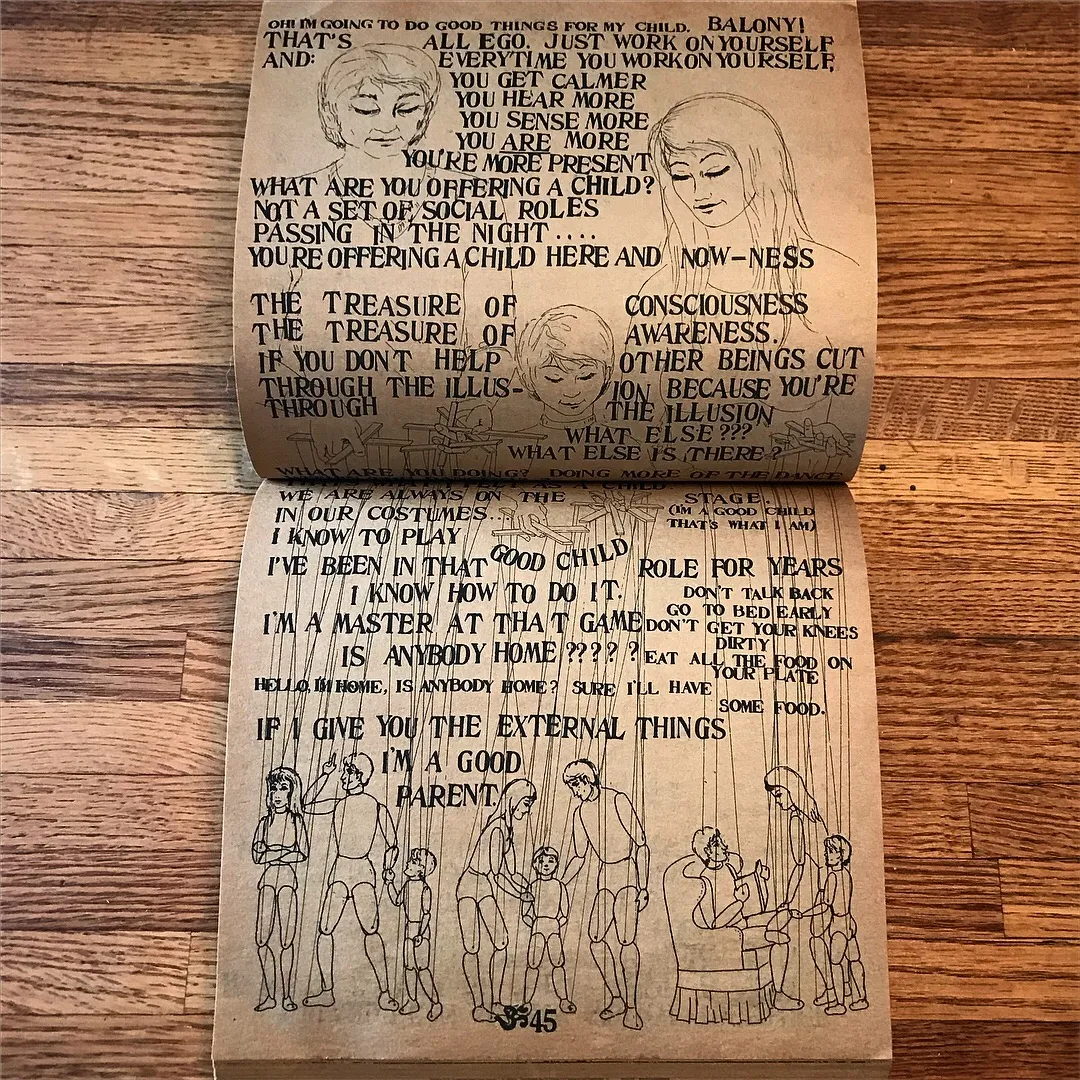 OH! I'M GOING TO DO GOOD THINGS FOR MY CHILD. BALONY!
THAT'S ALL EGO. JUST WORK ON YOURSELF
AND: EVERYTIME YOU WORK ON YOURSELF,
YOU GET CALMER
YOU HEAR MORE
YOU SENSE MORE
YOU ARE MORE
YOU'RE MORE PRESENT
WHAT ARE YOU OFFERING A CHILD?
NOT A SET OF SOCIAL ROLES
PASSING IN THE NIGHT ....
YOU'RE OFFERING A CHILD HERE AND NOW-NESS
THE TREASURE OF CONSCIOUSNESS
THE TREASURE OF AWARENESS.
IF YOU DON'T HELP OTHER BEINGS CUT
THROUGH THE ILLUS-ION BECAUSE YOU'RE
THROUGH THE ILLUSION
WHAT ELSE ???
WHAT ELSE IS THERE?
WHAT ARE YOU DOING? DOING MORE OF THE DANCE
AS A CHILD
WE ARE ALWAYS ON THE STAGE.
IN OUR COSTUMES... (I'M A GOOD CHILD
THAT'S WHAT I AM)
I KNOW TO PLAY
I'VE BEEN IN THAT GOOD CHILD ROLE FOR YEARS
I KNOW HOW TO DO IT. DON'T TALK BACK
GO TO BED EARLY
I'M A MASTER AT THAT GAME DON'T GET YOUR KNEES
DIRTY
IS ANYBODY HOME ???? ? EAT ALL THE FOOD ON
YOUR PLATE
HELLO, I'M HOME, IS ANYBODY HOME? SURE I'LL HAVE
SOME FOOD.
IF I GIVE YOU THE EXTERNAL THINGS
I'M A GOOD
PARENT.
ॐ 45